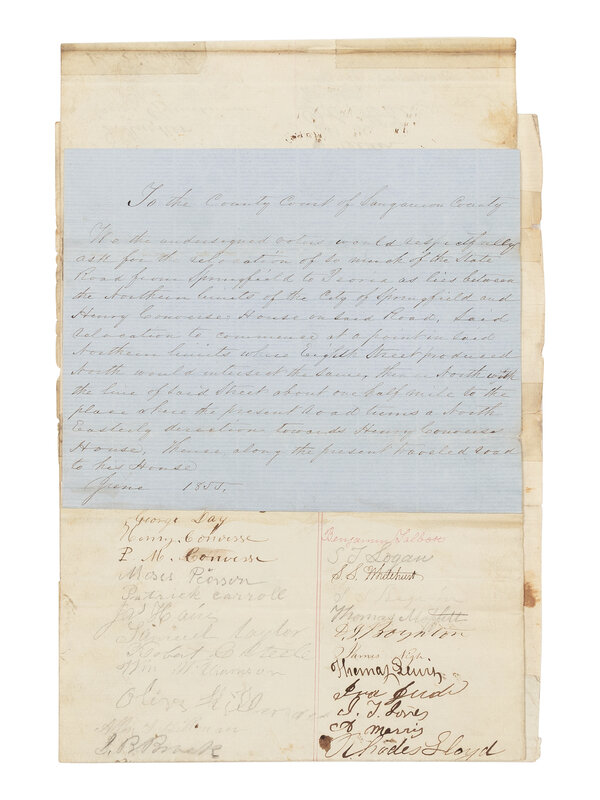 To the County Court of Sangamon County
We the undersigned voters would respectfully
ask for the relocation of so much of the State
Road from Springfield to Peoria as lies between
the Northern limits of the City of Springfield and
Henry Converses House on said Road, Said
relocation to commence at a point in said
Northern limits where Eighth Street produced
North would intersect the same, thence North with
the line of said Street about one half mile to the
place where the present Road turns a North
Easterly direction towards Henry Converses
House, thence along the present traveled road
to his House
June 1855.
George Day
Henry Converse
P. M. Converse
Moses Pierson
Patrick Carroll
Jas Haire
Samuel Taylor
Robert C Steele
Wm Williamson
Oliver
J. B. Brock
Benjamin Talbott
S T Logan
S. S. Whitehurst
Thomas Moffett
Boynton
James
Thomas Lewis
Ira Jude
J. T. Jones
Morris
Rhodes Lloyd